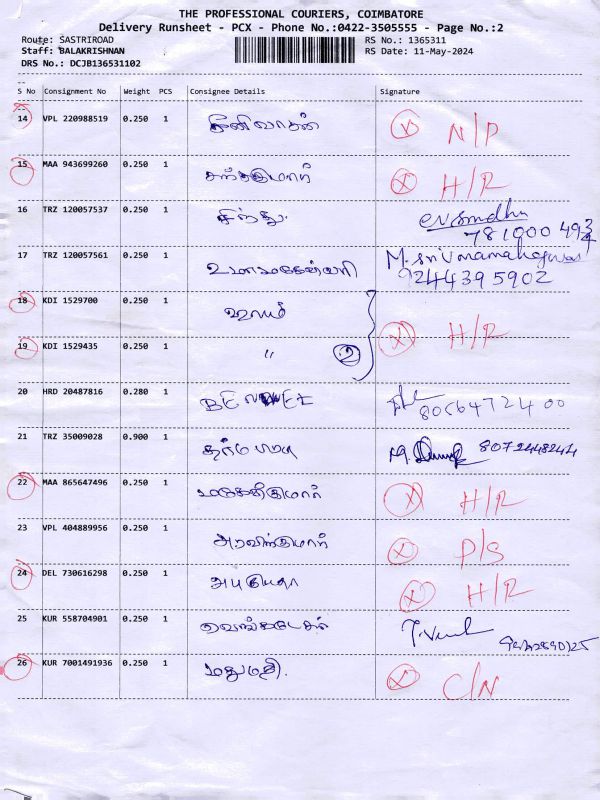 THE PROFESSIONAL COURIERS, COIMBATORE
Delivery Runsheet - PCX - Phone No.:0422-3505555 - Page No.:2
Route: SASTRIROAD RS No.: 1365311
Staff: BALAKRISHNAN RS Date: 11-May-2024
DRS No.: DCJB136531102
S No Consignment No Weight PCS Consignee Details Signature
14 VPL 220988519 0.250 1 சீனிவாசன் N/P
15 MAA 943699260 0.250 1 H/R
16 TRZ 120057537 0.250 1 சிந்து
17 TRZ 120057561 0.250 1 உமாமகேஸ்வரி 9244395902
18 KDI 1529700 0.250 1
19 KDI 1529435 0.250 1 " 2 H/R
20 HRD 20487816 0.280 1
21 TRZ 35009028 0.900 1 8072448244
22 MAA 865647496 0.250 1 H/R
23 VPL 404889956 0.250 1 அரவிந்குமார் P/S
24 DEL 730616298 0.250 1 H/R
25 KUR 558704901 0.250 1 வெங்கடேசன்
26 KUR 7001491936 0.250 1 மதுமதி. C/N